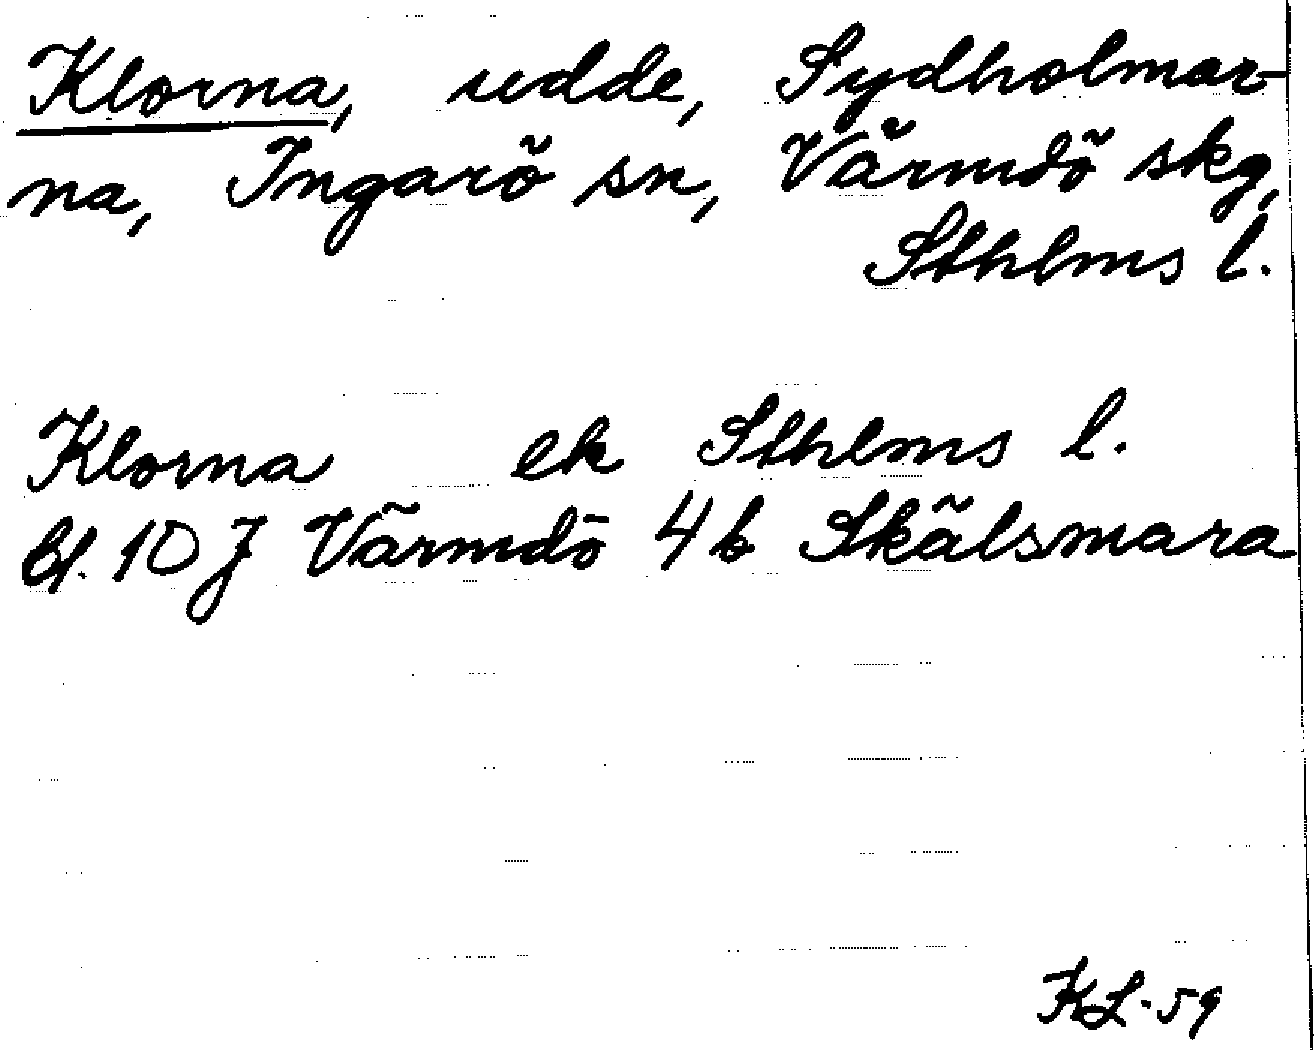 Klorna, udde, Sydholmar-
na, Ingarö sn, Värmdö skg,
Sthlms l.
Klorna ek Sthlms l.
bl. 10 J Värmdö 4 b Skälsmara
KL-59